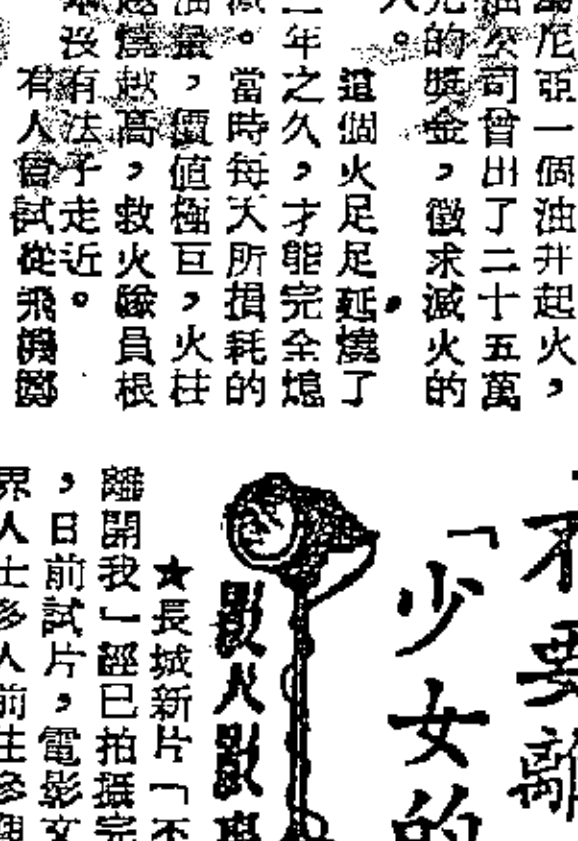 萬尼亞一個油井起火，
油公司曾出了二十五萬
元的獎金，徵求滅火的
人。
這個火足足延燒了
二年之久，才能完全熄
滅。當時每天所損耗的
油量，價值極巨，火柱
越燒越高，救火隊員根
本沒有法子走近。
有人曾試從飛機擲
不要離
「少女的
影人影事
★長城新片「不
離開我」經已拍攝完
，日前試片，電影文
界人士多人前往參觀